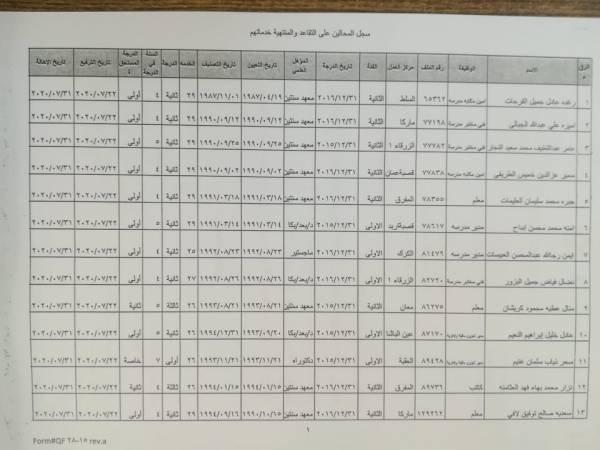 سجل المحالين على التقاعد والمنتهية خدماتهم
الاسم الوظيفة رقم الملف مركز العمل الفئة تاريخ الدرجة المؤهل العلمي تاريخ التعيين تاريخ التصنيف الخدمة الدرجة السنة في الدرجة الدرجة المستحقة تاريخ الترفيع تاريخ الإحالة
١ رغده عادل جميل الفرحات امين مكتبه مدرسه ٦٥٣٦٢ السلط الثانية ٢٠١٦/١٢/٣١ معهد سنتين ١٩٨٧/٠٤/١٩ ١٩٨٧/١١/٠١ ٢٩ ثانية ٤ أولى ٢٠٢٠/٠٧/٢٢ ٢٠٢٠/٠٧/٣١
٢ اميره علي عبدالله الجبالي فني مختبر مدرسة ٧٧١٩٨ ماركا الثانية ٢٠١٦/١٢/٣١ معهد سنتين ١٩٩٠/٠٩/١٢ ١٩٩٠/٠٩/١٢ ٢٩ ثانية ٤ أولى ٢٠٢٠/٠٧/٢٢ ٢٠٢٠/٠٧/٣١
٣ عبداللطيف محمد سعيد النجار فني مختبر مدرسة ٧٧٧٨٢ الزرقاء ١ الثانية ٢٠١٥/١٢/٣١ معهد سنتين ١٩٩٠/٠٩/٢٥ ١٩٩٠/٠٩/٢٥ ٢٩ ثانية ٥ أولى ٢٠٢٠/٠٧/٢٢ ٢٠٢٠/٠٧/٣١
٤ سمير عزالدين خميس الطريفي امين مكتبه مدرسه ٧٧٨٣٨ قصبة عمان الثانية ٢٠١٦/١٢/٣١ معهد سنتين ١٩٩٠/٠٩/٠٢ ١٩٩٠/٠٩/٠٢ ٢٩ ثانية ٤ أولى ٢٠٢٠/٠٧/٢٢ ٢٠٢٠/٠٧/٣١
٥ محمد سليمان العليمات معلم ٧٨٣٥٥ المفرق الثانية ٢٠١٦/١٢/٣١ معهد سنتين ١٩٩١/٠٣/١٨ ١٩٩١/٠٣/١٨ ٢٩ ثانية ٤ أولى ٢٠٢٠/٠٧/٢٢ ٢٠٢٠/٠٧/٣١
٦ امنه محمد محسن مدير مدرسه ٧٨٦١٧ قصبة اربد الاولى ٢٠١٥/١٢/٣١ د/بعد/بكا ١٩٩١/٠٣/١٤ ١٩٩١/٠٣/١٤ ٢٩ ثانية ٥ أولى ٢٠٢٠/٠٧/٢٢ ٢٠٢٠/٠٧/٣١
٧ ايمن رجاالله عبدالمحسن مدير مدرسه ٨١٤٧٩ الكرك الاولى ٢٠١٦/١٢/٣١ ماجستير ١٩٩٢/٠٨/٢٣ ١٩٩٢/٠٨/٢٣ ٢٥ ثانية ٤ أولى ٢٠٢٠/٠٧/٢٢ ٢٠٢٠/٠٧/٣١
٨ نضال فياض جميل البزور فني مختبر مدرسة ٨٢٧٢٠ الزرقاء ١ الاولى ٢٠١٦/١٢/٣١ د/بعد/بكا ١٩٩٢/٠٨/٢٦ ١٩٩٢/٠٨/٢٦ ٢٧ ثانية ٤ أولى ٢٠٢٠/٠٧/٢٢ ٢٠٢٠/٠٧/٣١
٩ منال عطيه محمود كريشان معلم ٨٦٢٧٥ معان الثانية ٢٠١٥/١٢/٣١ معهد سنتين ١٩٩٣/٠٨/٢١ ١٩٩٣/٠٨/٢١ ٢٦ ثالثة ٥ ثانية ٢٠٢٠/٠٧/٢٢ ٢٠٢٠/٠٧/٣١
١٠ عادل خليل ابراهيم النعيم ٨٧١٧٠ عين الباشا الاولى ٢٠١٥/١٢/٣١ د/بعد/بكا ١٩٩٣/٠٩/٢٠ ١٩٩٤/١٢/٣١ ٢٦ ثانية ٥ أولى ٢٠٢٠/٠٧/٢٢ ٢٠٢٠/٠٧/٣١
١١ سحر ذياب سلمان غنيم ٨٩٤٦٨ العقبة الاولى ٢٠١٣/١٢/٣١ دكتوراه ١٩٩٣/١١/٢١ ١٩٩٣/١١/٢١ أولى ٧ خاصة ٢٠٢٠/٠٧/٢٢ ٢٠٢٠/٠٧/٣١
١٢ نزار محمد بهاء فهد العثامنه كاتب ٨٩٧٣٦ المفرق الثانية ٢٠١٦/١٢/٣١ معهد سنتين ١٩٩٤/٠١/١٥ ١٩٩٤/٠١/١٥ ٢٦ ثالثة ٤ ثانية ٢٠٢٠/٠٧/٢٢ ٢٠٢٠/٠٧/٣١
١٣ سعديه صالح توفيق لافي معلم ١٢٩٢٦٢ ماركا الثانية ٢٠١٦/١٢/٣١ معهد سنتين ١٩٩٠/١٠/١٥ ١٩٩٤/٠٩/١٦ ٢٩ ثانية ٤ أولى ٢٠٢٠/٠٧/٢٢ ٢٠٢٠/٠٧/٣١
١
Form#QF ٢٨-١٥ rev.a